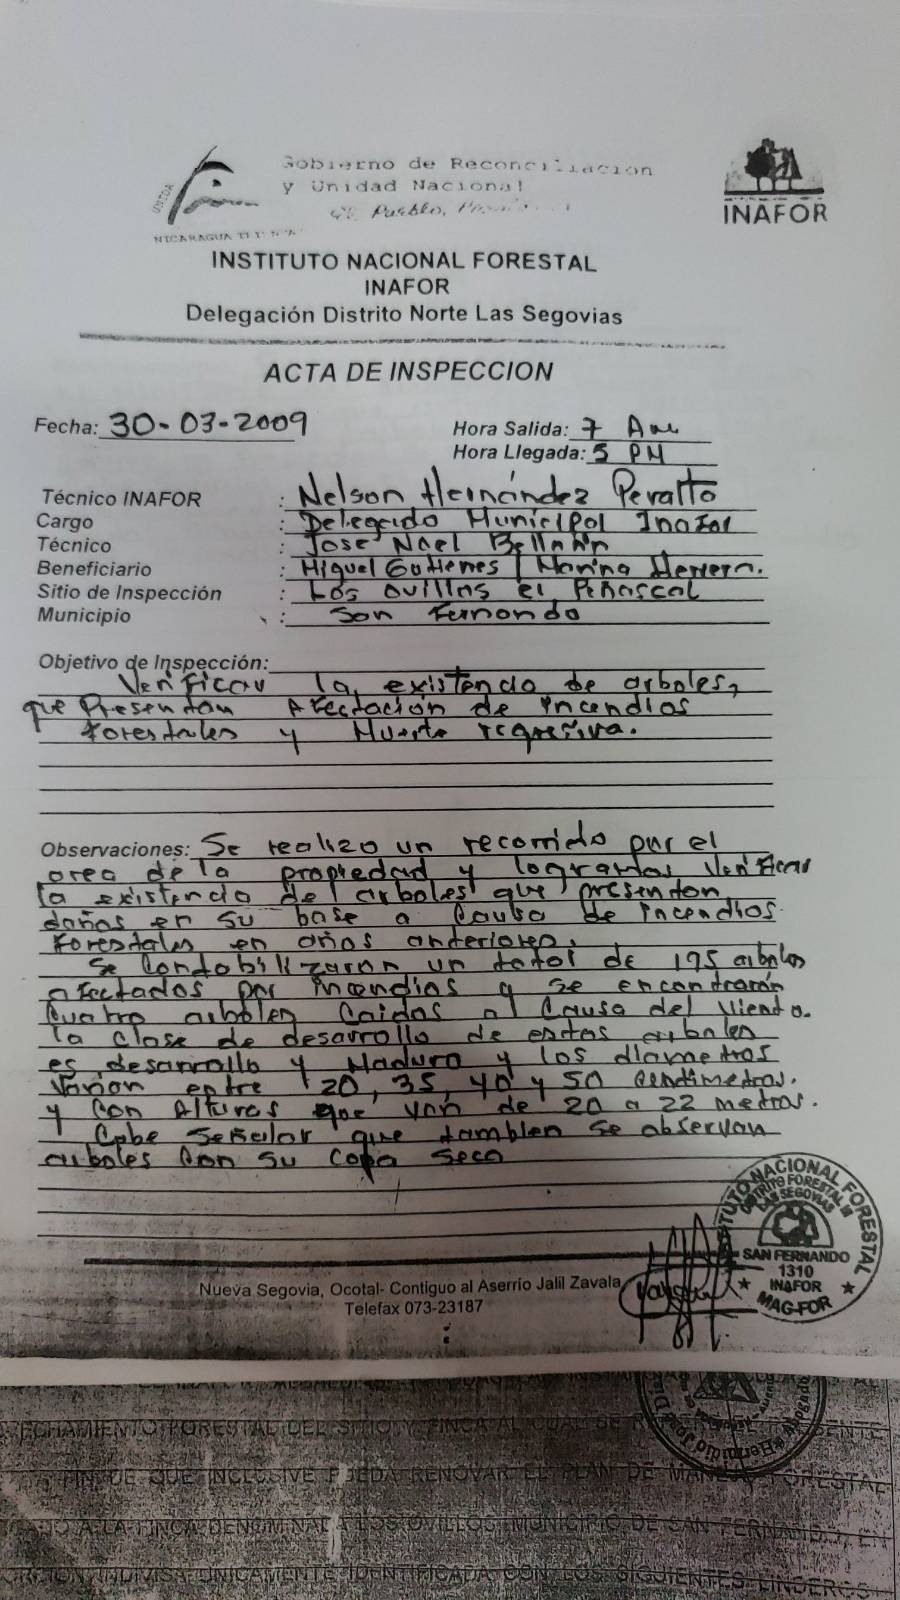 Gobierno de Reconciliacion
y Unidad Nacional
El Pueblo,
UNIDA
NICARAGUA
INAFOR
INSTITUTO NACIONAL FORESTAL
INAFOR
Delegación Distrito Norte Las Segovias
ACTA DE INSPECCION
Fecha: 30-03-2009
Hora Salida: 7 Am
Hora Llegada: 5 PM
Técnico INAFOR : Nelson Hernández Peralto
Cargo : Delegado Municipal Inafor
Técnico : Jose Noel Bellman
Beneficiario : Miguel Gutierres / Marina Herrera.
Sitio de Inspección : Los Ovillos el Peñascal
Municipio : San Fernando
Objetivo de Inspección:
Verificar la existencia de arboles,
que Presentan Afectación de incendios
Forestales y Muerte regresiva.
Observaciones: Se realizo un recorrido por el
area de la propiedad y logramos Verificar
la existencia de arboles que presentan
daños en su base a Causa de incendios
Forestales en años anteriores.
Se Contabilizaron un total de 175 arboles
afectados por incendios y se encontraron
Cuatro arboles Caidos a Causa del Viento.
la clase de desarrollo de estos arboles
es desarrollo y Maduro y los diametros
Varian entre 20, 35, 40 y 50 Centimetros.
y Con Alturas que van de 20 a 22 metros.
Cabe Señalar que tambien se observan
arboles Con su Copa Seca
INSTITUTO NACIONAL FORESTAL
DISTRITO FORESTAL III
LAS SEGOVIAS
SAN FERNANDO
1310
INAFOR
MAG-FOR
Nueva Segovia, Ocotal- Contiguo al Aserrío Jalil Zavala
Telefax 073-23187
FORESTAL DEL SITIO Y FINCA AL CUAL SE
FIN DE QUE INCLUSIVE PUEDA RENOVAR EL PLAN DE MANEJO FORESTAL
A LA FINCA DENOMINADA LOS OVILLOS MUNICIPIO DE SAN FERNANDO, EN
INDIVISA UNICAMENTE IDENTIFICADA CON LOS SIGUIENTES LINDEROS